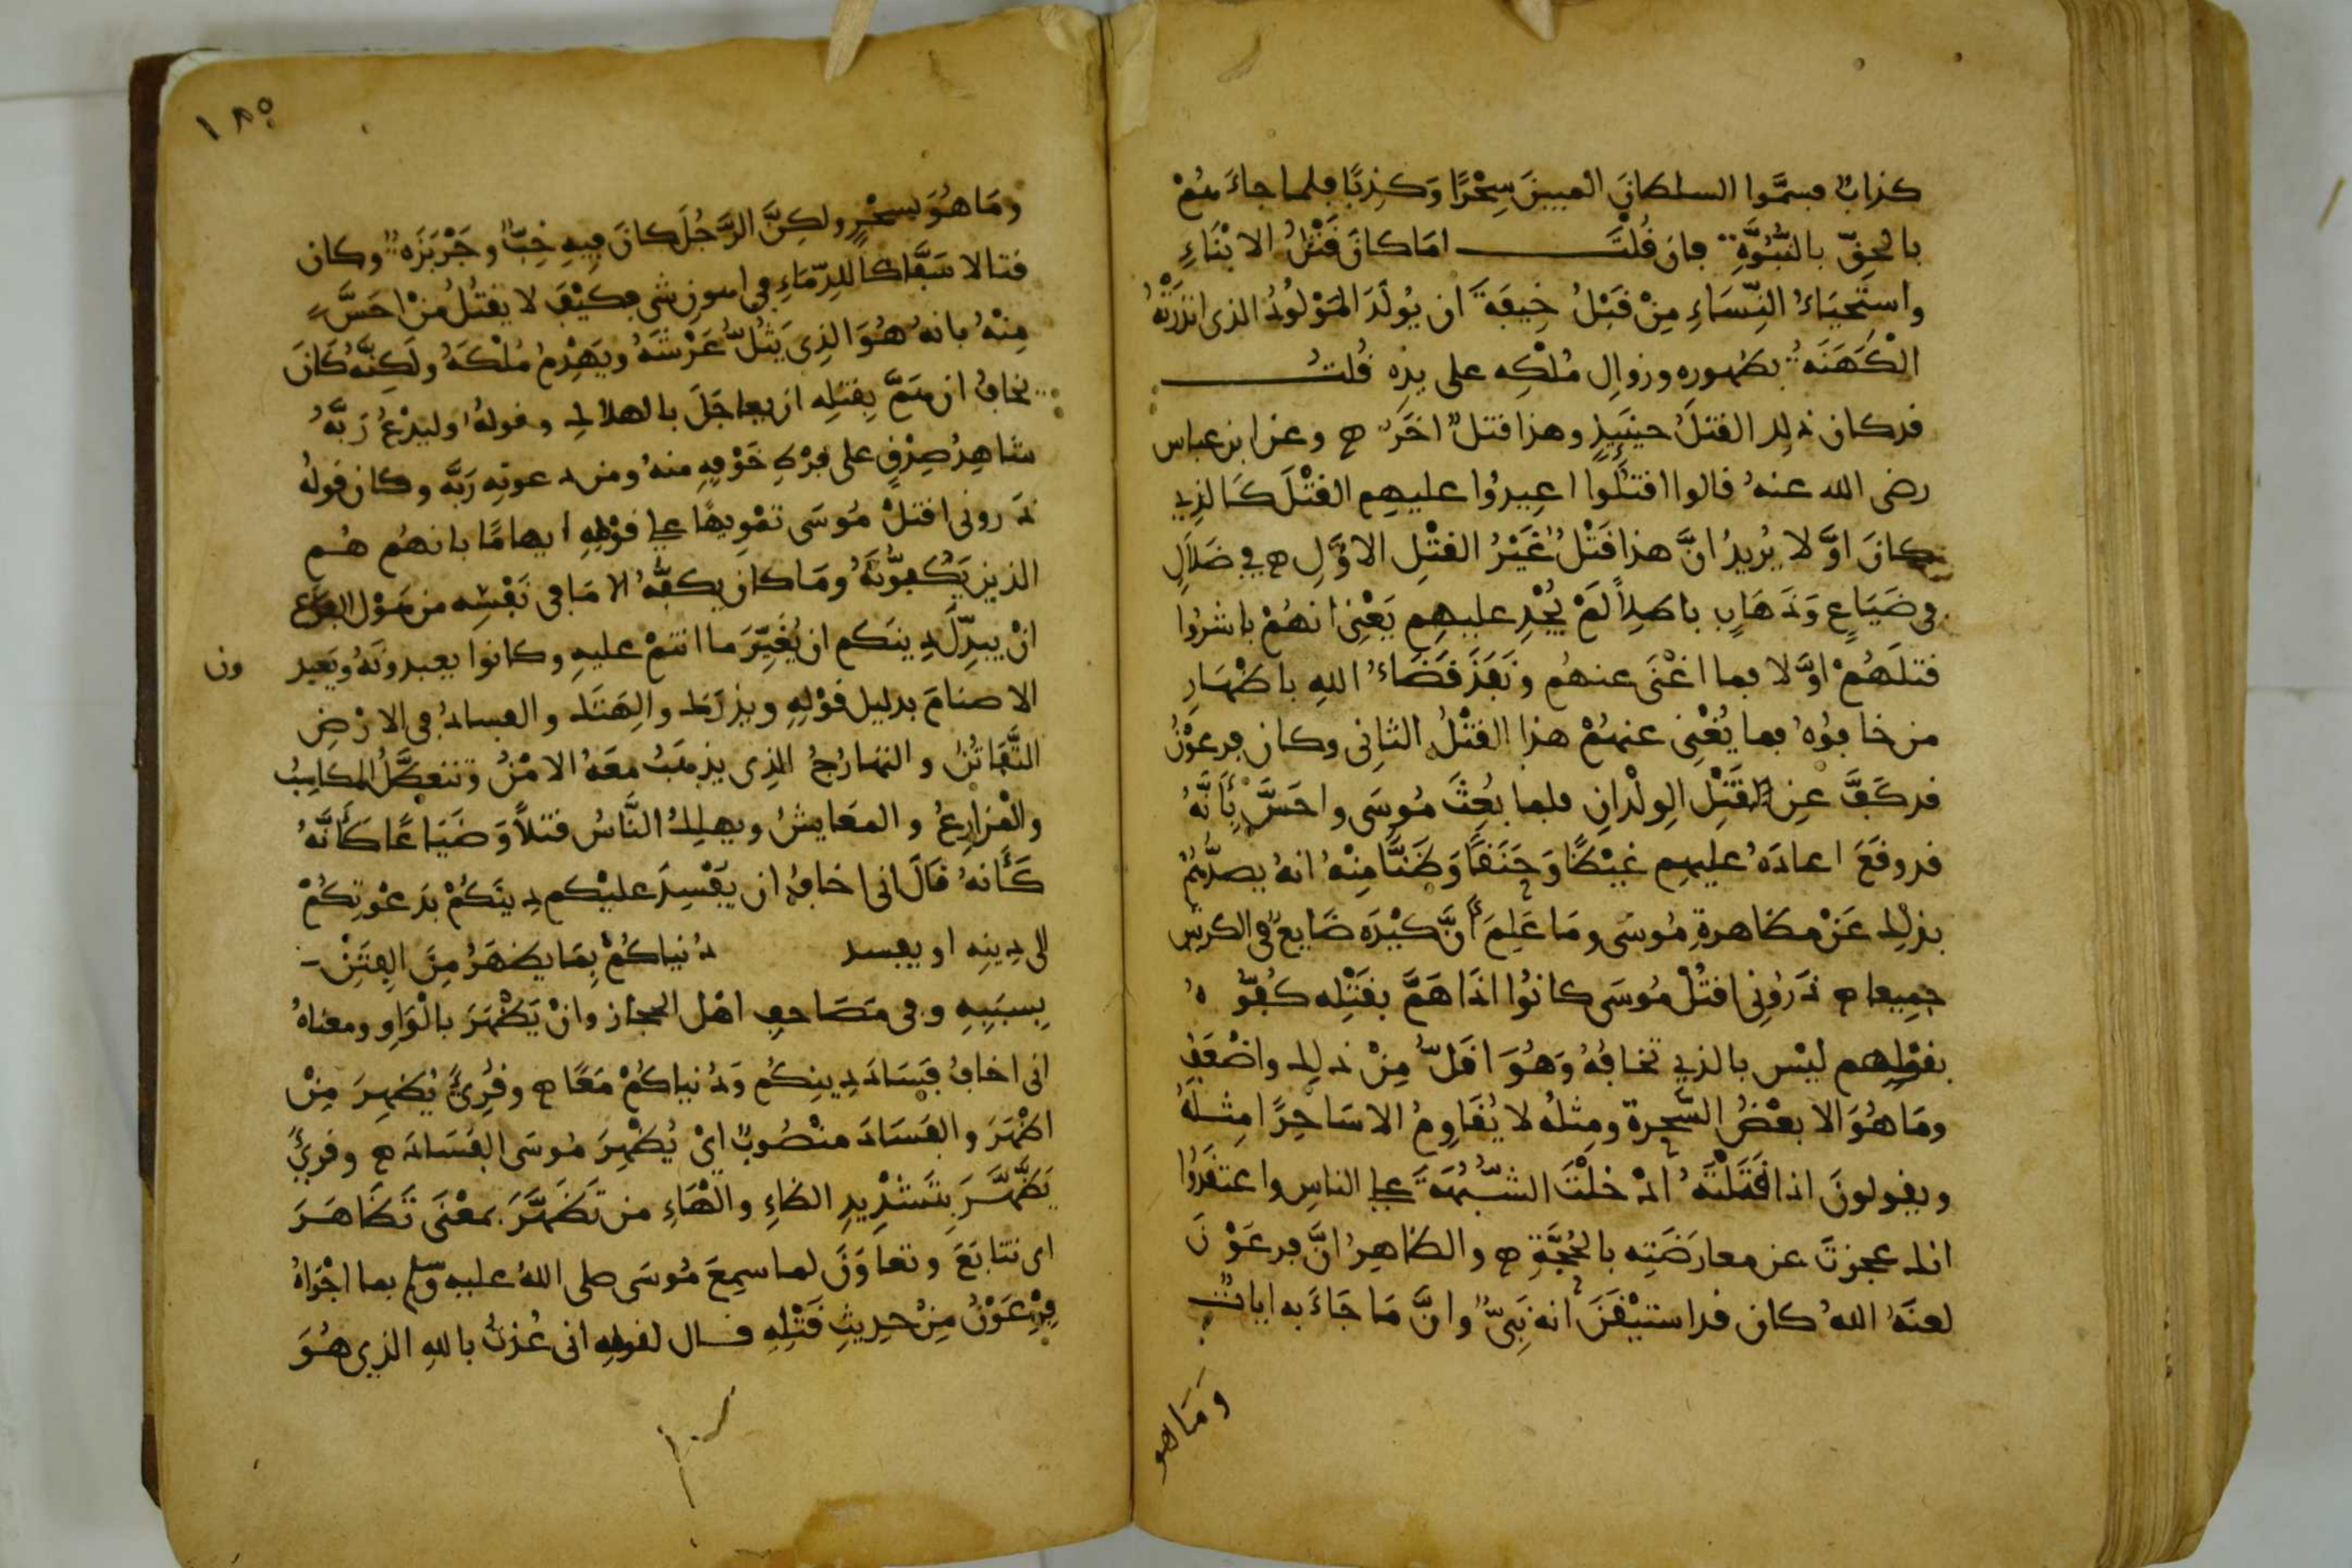 كذاب فسموا السلطان المبين سِحْرًا وَكَذِبًا فلما جاءَهُمْ
بالحقّ بالنُّبُوَّةِ فان قُلْتَ اما كان قَتْلُ الابْنَاءِ
واستحيَاءُ النِّسَاءِ مِنْ قَبْلُ خِيفَةَ ان يُولَدَ المَوْلُودُ الذى انذرَتْهُ
الْكَهَنَةُ بظهورِهِ وزوالِ مُلْكِه على يدِه قُلتُ
قد كان ذلك القتلُ حينَيِذٍ وهذا قتلٌ اخَرُ ه وعن ابن عباس
رضى الله عنهُ قالوا اقتلُوا اعِيدُوا عليهِم القتْلَ كَالذِي
كانَ اوَّلا يُرِيدُ انَّ هذا قَتْلٌ غَيْرُ القتْلِ الاوَّلِ ه فِي ضَلَالٍ
فى ضَيَاعٍ وَذَهَابٍ باطلاً لَمْ يُجْدِ عليهِم يَعْنِى انهُمْ باشرُوا
قتلَهُمْ اوَّلا فما اغْنَى عنهُم ونَفَذَ قَضَاءُ اللهِ باظْهَارِ
من خافُوُه فما يُغْنِى عنهُمْ هذا القتْلُ الثانِى وكان فرعَوْنُ
قد كَفَّ عنِ قَتْلِ الوِلْدانِ فلما بُعِثَ مُوسَى واحَسَّ بِأَنَّهُ
قد وقَعَ اعادَهُ عليهِم غيْظًا وَحَنَقًا وَظَنًّا مِنْهُ انهُ يصدُّهُمْ
بذلِك عَنْ مظاهرةِ مُوسَى ومَا عَلِمَ أنَّ كَيْدَه ضَايعٌ فى الكرتين
جمِيعا ه ذَرُونِى اقتُلْ مُوسَى كانُوا اذَا هَمَّ بقَتْلِه كَفُّوهُ
بقوْلِهِم ليْس بالذِي تخافُهُ وَهُوَ اقَلُّ مِنْ ذلِك واضْعَفُ
ومَا هُوَ الا بعْضُ السَّحرة ومِثلُه لا يُقَاوِمُ الا سَاحِرًا مِثلَهُ
ويقولونَ اذا قَتَلْتَهُ ادْخلْتَ الشُّبْهَةَ على الناسِ واعتقَدُوا
انك عجزتَ عن معارضَتِه بالحُجَّةِ ه والظاهِرُ انَّ فرعَوْنَ
لعنَهُ اللهُ كان قد استيْقَنَ انه نَبِىٌّ وانَّ مَا جَاءَ به اياتٌ
وَمَا هو
١٨٥
ومَا هُوَ بسحْرٍ ولكِنَّ الرَّجُلَ كانَ فِيهِ خِبٌّ وجَرْبَزَه وكان
قتالا سَفَّاكاً للدِّمَاءِ فى اهون شى فكيْفَ لا يقتُلُ مَنْ احَسَّ
مِنْهُ بانه هُوَ الذِى يَثُلُّ عَرْشَهُ ويَهْدِمُ مُلْكَهُ ولَكِنَّهُ كَانَ
يخافُ ان هَمَّ بِقتلِه ان يعاجَلَ بالهلاك وقولهُ وليَدْعُ رَبَّهُ
شاهِدُ صِدْقٍ على فرْطِ خَوْفِهِ منهُ ومن دعوتِه رَبَّه وكان قولهُ
ذَرونى اقتلْ مُوسَى تمْوِيهًا على قوْمِهِ ايهامًا بانهُم هُم
الذين يَكُفوُّنَهُ ومَا كان يكفُّهُ الا مَا فى نَفْسِه من هَوْل الفزع
انْ يبدِّلَ دِينَكم ان يُغَيِّرَ ما انتمْ عليهِ وكانوا يعبدونَهُ ويَعبدون
الاصنامَ بدليل قوْلِهِ ويذرَكَ وآلِهَتَك والفسادُ فى الارْضِ
التَّفاتُنُ والتهارُجُ الذِى يذهَبُ معَهُ الامْنُ وتتعطَّلُ المكاسِبُ
والمَزارِعُ والمعَايشُ ويهلِكُ النَّاسُ قتلاً وَضَيَاعًا كَأَنَّهُ
كَأَنهُ قالَ انى اخافُ ان يُفْسِدَ عليْكم دِينَكُمْ بدَعْوتِكُمْ
الى دِينِه او يفسد دُنياكُمْ بِمَا يظهَرُ مِنَ الفِتَنِ
بِسبَبِهِ وفى مَصَاحفِ اهْل الحجاز وانْ يَظْهَرَ بالْوَاوِ ومعناهُ
انى اخافُ فسَادَ دِينِكُم وَدُنياكُمْ مَعًا ه وقُرِئَ يُظهِرَ مِنْ
اظهَرَ والفسَادَ منْصُوبٌ اىْ يُظْهِرَ مُوسَى الفسَادَ ه وقرِئَ
يَظَّهَّرَ بتَشْدِيدِ الظاءِ والْهَاءِ من تَظَهَّرَ بمعْنَى تَظَاهَرَ
اى تتابَعَ وتعاوَنَ لما سمِعَ مُوسَى صلى اللهُ عليه وسلم بما اجْرَاهُ
فِرْعَوْنُ مِنْ حدِيثِ قَتْلِهِ قال لقومِهِ انى عُذتُ باللهِ الذِى هُوَ